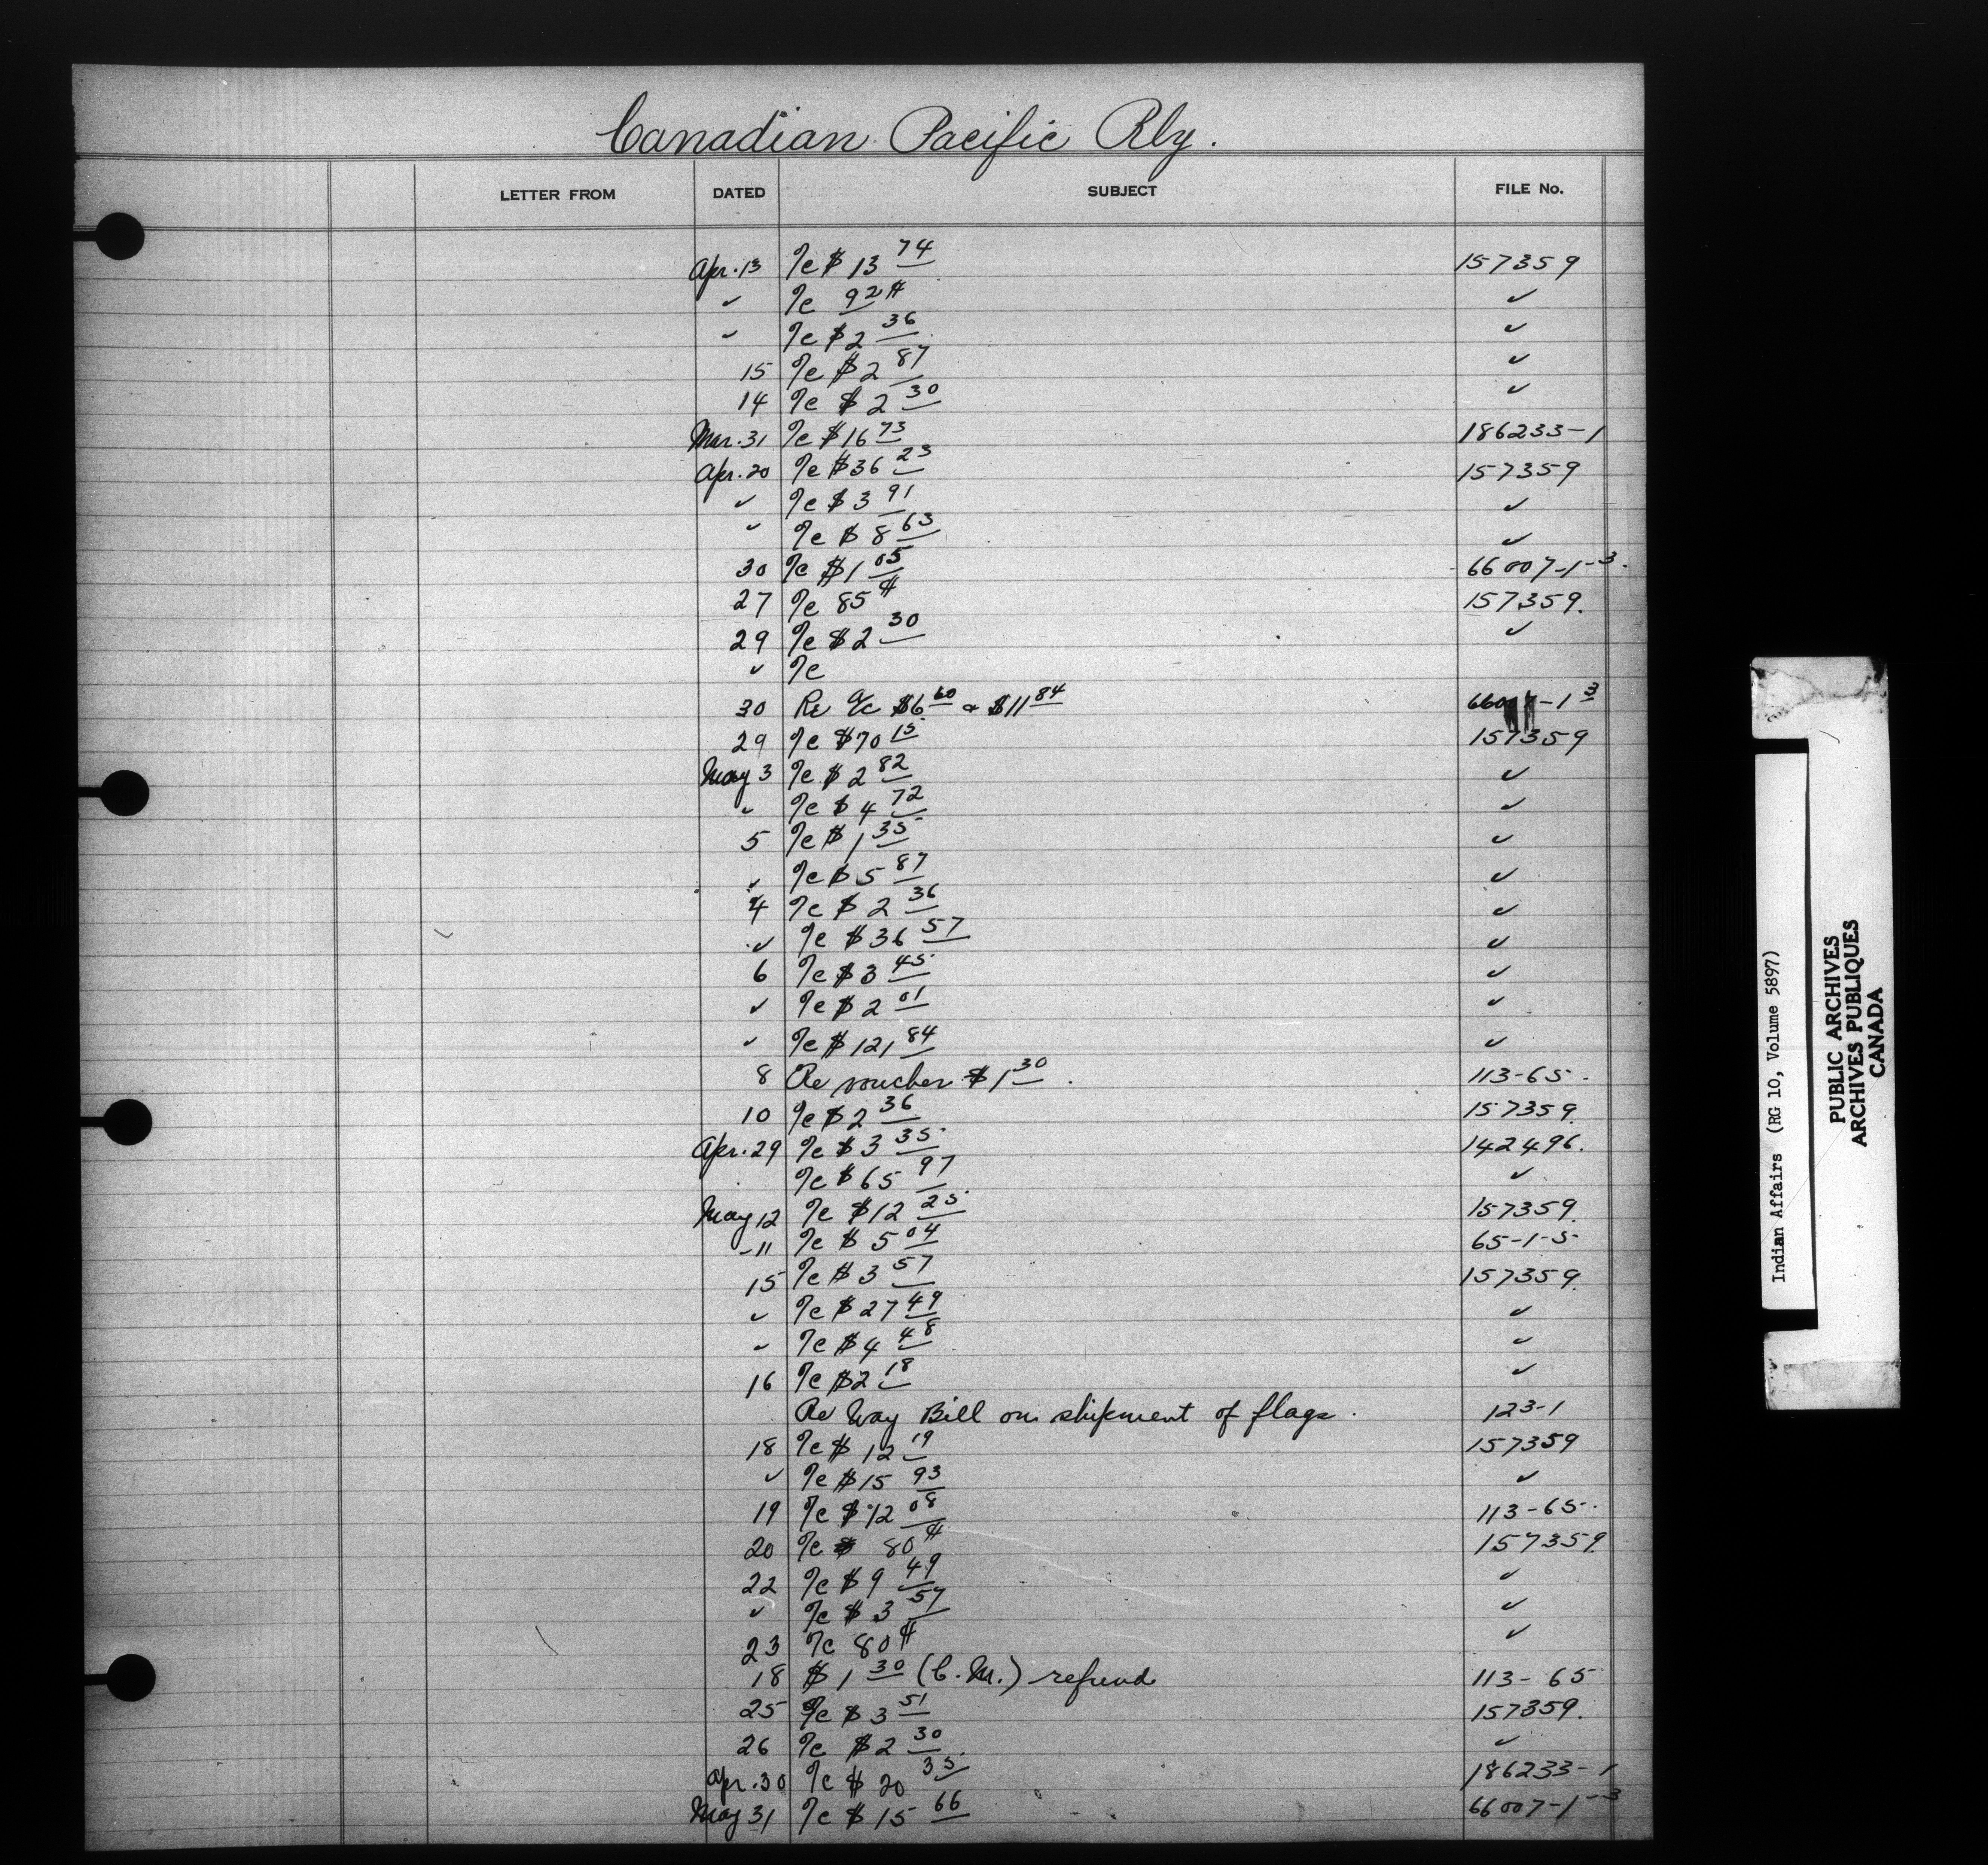 Canadian Pacific Rly.
LETTER FROM DATED SUBJECT FILE No.
Apr. 13 a/c $13 74 157359
✓ a/c 92¢ ✓
✓ a/c $2 36 ✓
15 a/c $2 87 ✓
14 a/c $2 30 ✓
Mar. 31 a/c $16 73 186233-1
Apr. 20 a/c $36 23 157359
✓ a/c $3 91 ✓
✓ a/c $8 63 ✓
30 a/c $1 05 66007-1-3.
27 a/c 85¢ 157359.
29 a/c $2 30 ✓
✓ a/c
30 Re a/c $6 60 & $11 84 66007-1 3
29 a/c $70 15 157359
May 3 a/c $2 82 ✓
✓ a/c $4 72 ✓
5 a/c $1 35 ✓
✓ a/c $5 87 ✓
4 a/c $2 36 ✓
✓ a/c $36 57 ✓
6 a/c $3 45 ✓
✓ a/c $2 01 ✓
✓ a/c $121 84 ✓
8 Re voucher $1 30. 113-65.
10 a/c $2 36 157359.
Apr. 29 a/c $3 35 142496.
a/c $65 97 ✓
May 12 a/c $12 25 157359.
11 a/c $5 04 65-1-5
15 a/c $3 57 157359.
✓ a/c $27 49 ✓
✓ a/c $4 48 ✓
16 a/c $2 18 ✓
Re Way Bill on shipment of flags. 123-1
18 a/c $12 19 157359
✓ a/c $15 93 ✓
19 a/c $12 08 113-65.
20 a/c $ 80¢ 157359.
22 a/c $9 49 ✓
✓ a/c $3 57 ✓
23 a/c 80¢ ✓
18 $1 30 (C.M.) refund 113-65
25 a/c $3 51 157359.
26 a/c $2 30 ✓
Apr. 30 a/c $20 35 186233-1
May 31 a/c $15 66 66007-1-3
Indian Affairs (RG 10, Volume 5897)
PUBLIC ARCHIVES
ARCHIVES PUBLIQUES
CANADA